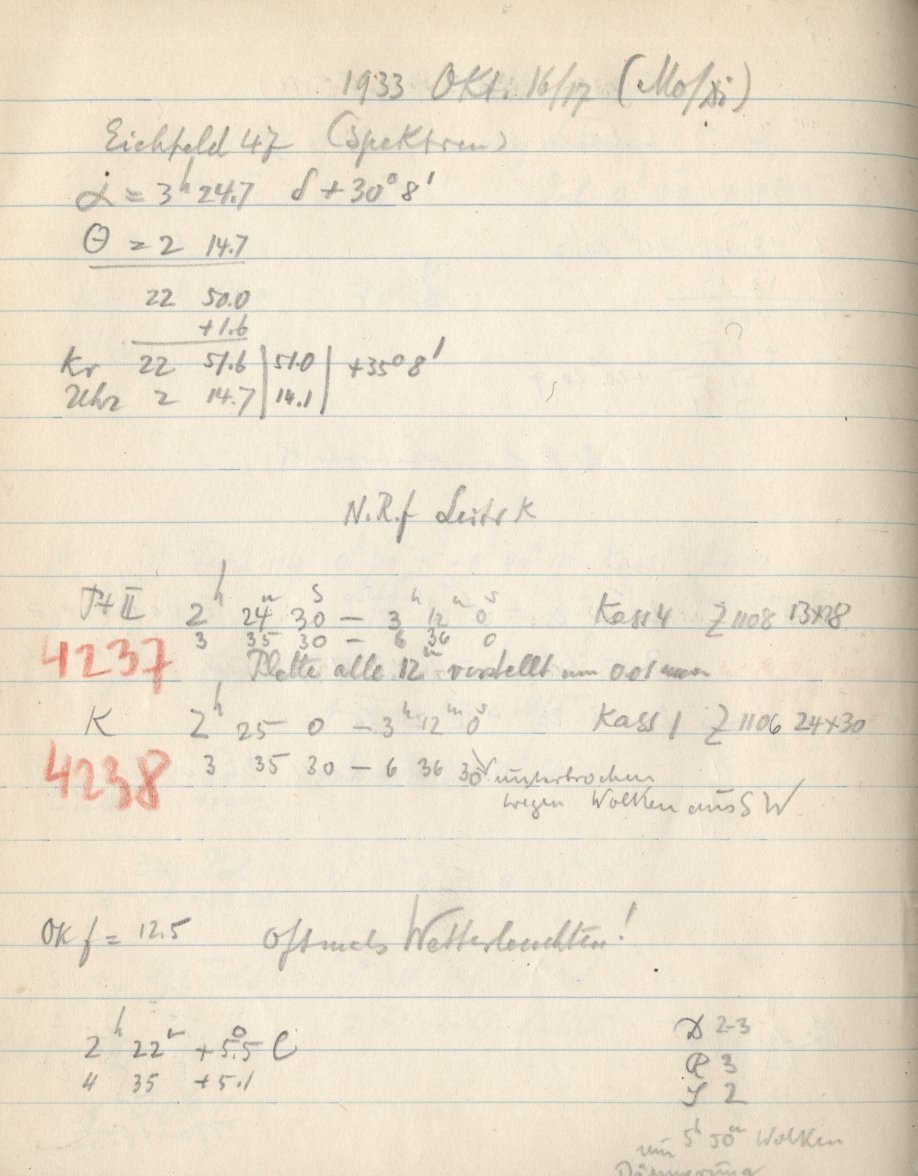 1933 Okt. 16/17 (Mo/Di)
Eichfeld 47 (Spektren)
α = 3h 24.7 δ + 30° 8'
θ = 2 14.7
22 50.0
+1.6
Kr 22 51.6 | 51.0 | +35° 8'
Uhr 2 14.7 | 14.1 |
N.R.f Leitr K
Pt II 2h 24m 30s — 3h 12m 0s Kass 4 Z 1108 13×18
3 35 30 — 6 36 0
4237 Platte alle 12m verstellt um 0.01 mm
K 2h 25 0 — 3h 12m 0s Kass 1 Z 1106 24×30
4238 3 35 30 — 6 36 30 unterbrochen
wegen Wolken aus SW
OK f = 12.5 Oftmals Wetterleuchten!
2h 22m +5.5° C
4 35 +5.1
D 2-3
R 3
S 2
um 5h 50m Wolken
Dämmerung